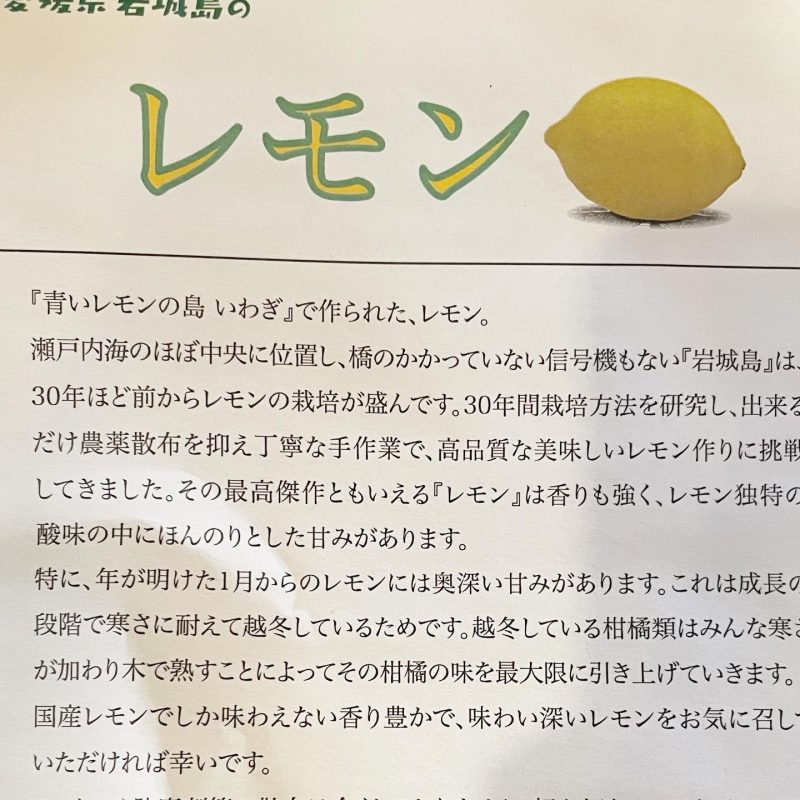 愛媛県 岩城島の
レモン
『青いレモンの島 いわぎ』で作られた、レモン。
瀬戸内海のほぼ中央に位置し、橋のかかっていない信号機もない『岩城島』は、
30年ほど前からレモンの栽培が盛んです。30年間栽培方法を研究し、出来る
だけ農薬散布を抑え丁寧な手作業で、高品質な美味しいレモン作りに挑戦
してきました。その最高傑作ともいえる『レモン』は香りも強く、レモン独特の
酸味の中にほんのりとした甘みがあります。
特に、年が明けた1月からのレモンには奥深い甘みがあります。これは成長の
段階で寒さに耐えて越冬しているためです。越冬している柑橘類はみんな寒さ
が加わり木で熟すことによってその柑橘の味を最大限に引き上げていきます。
国産レモンでしか味わえない香り豊かで、味わい深いレモンをお気に召して
いただければ幸いです。